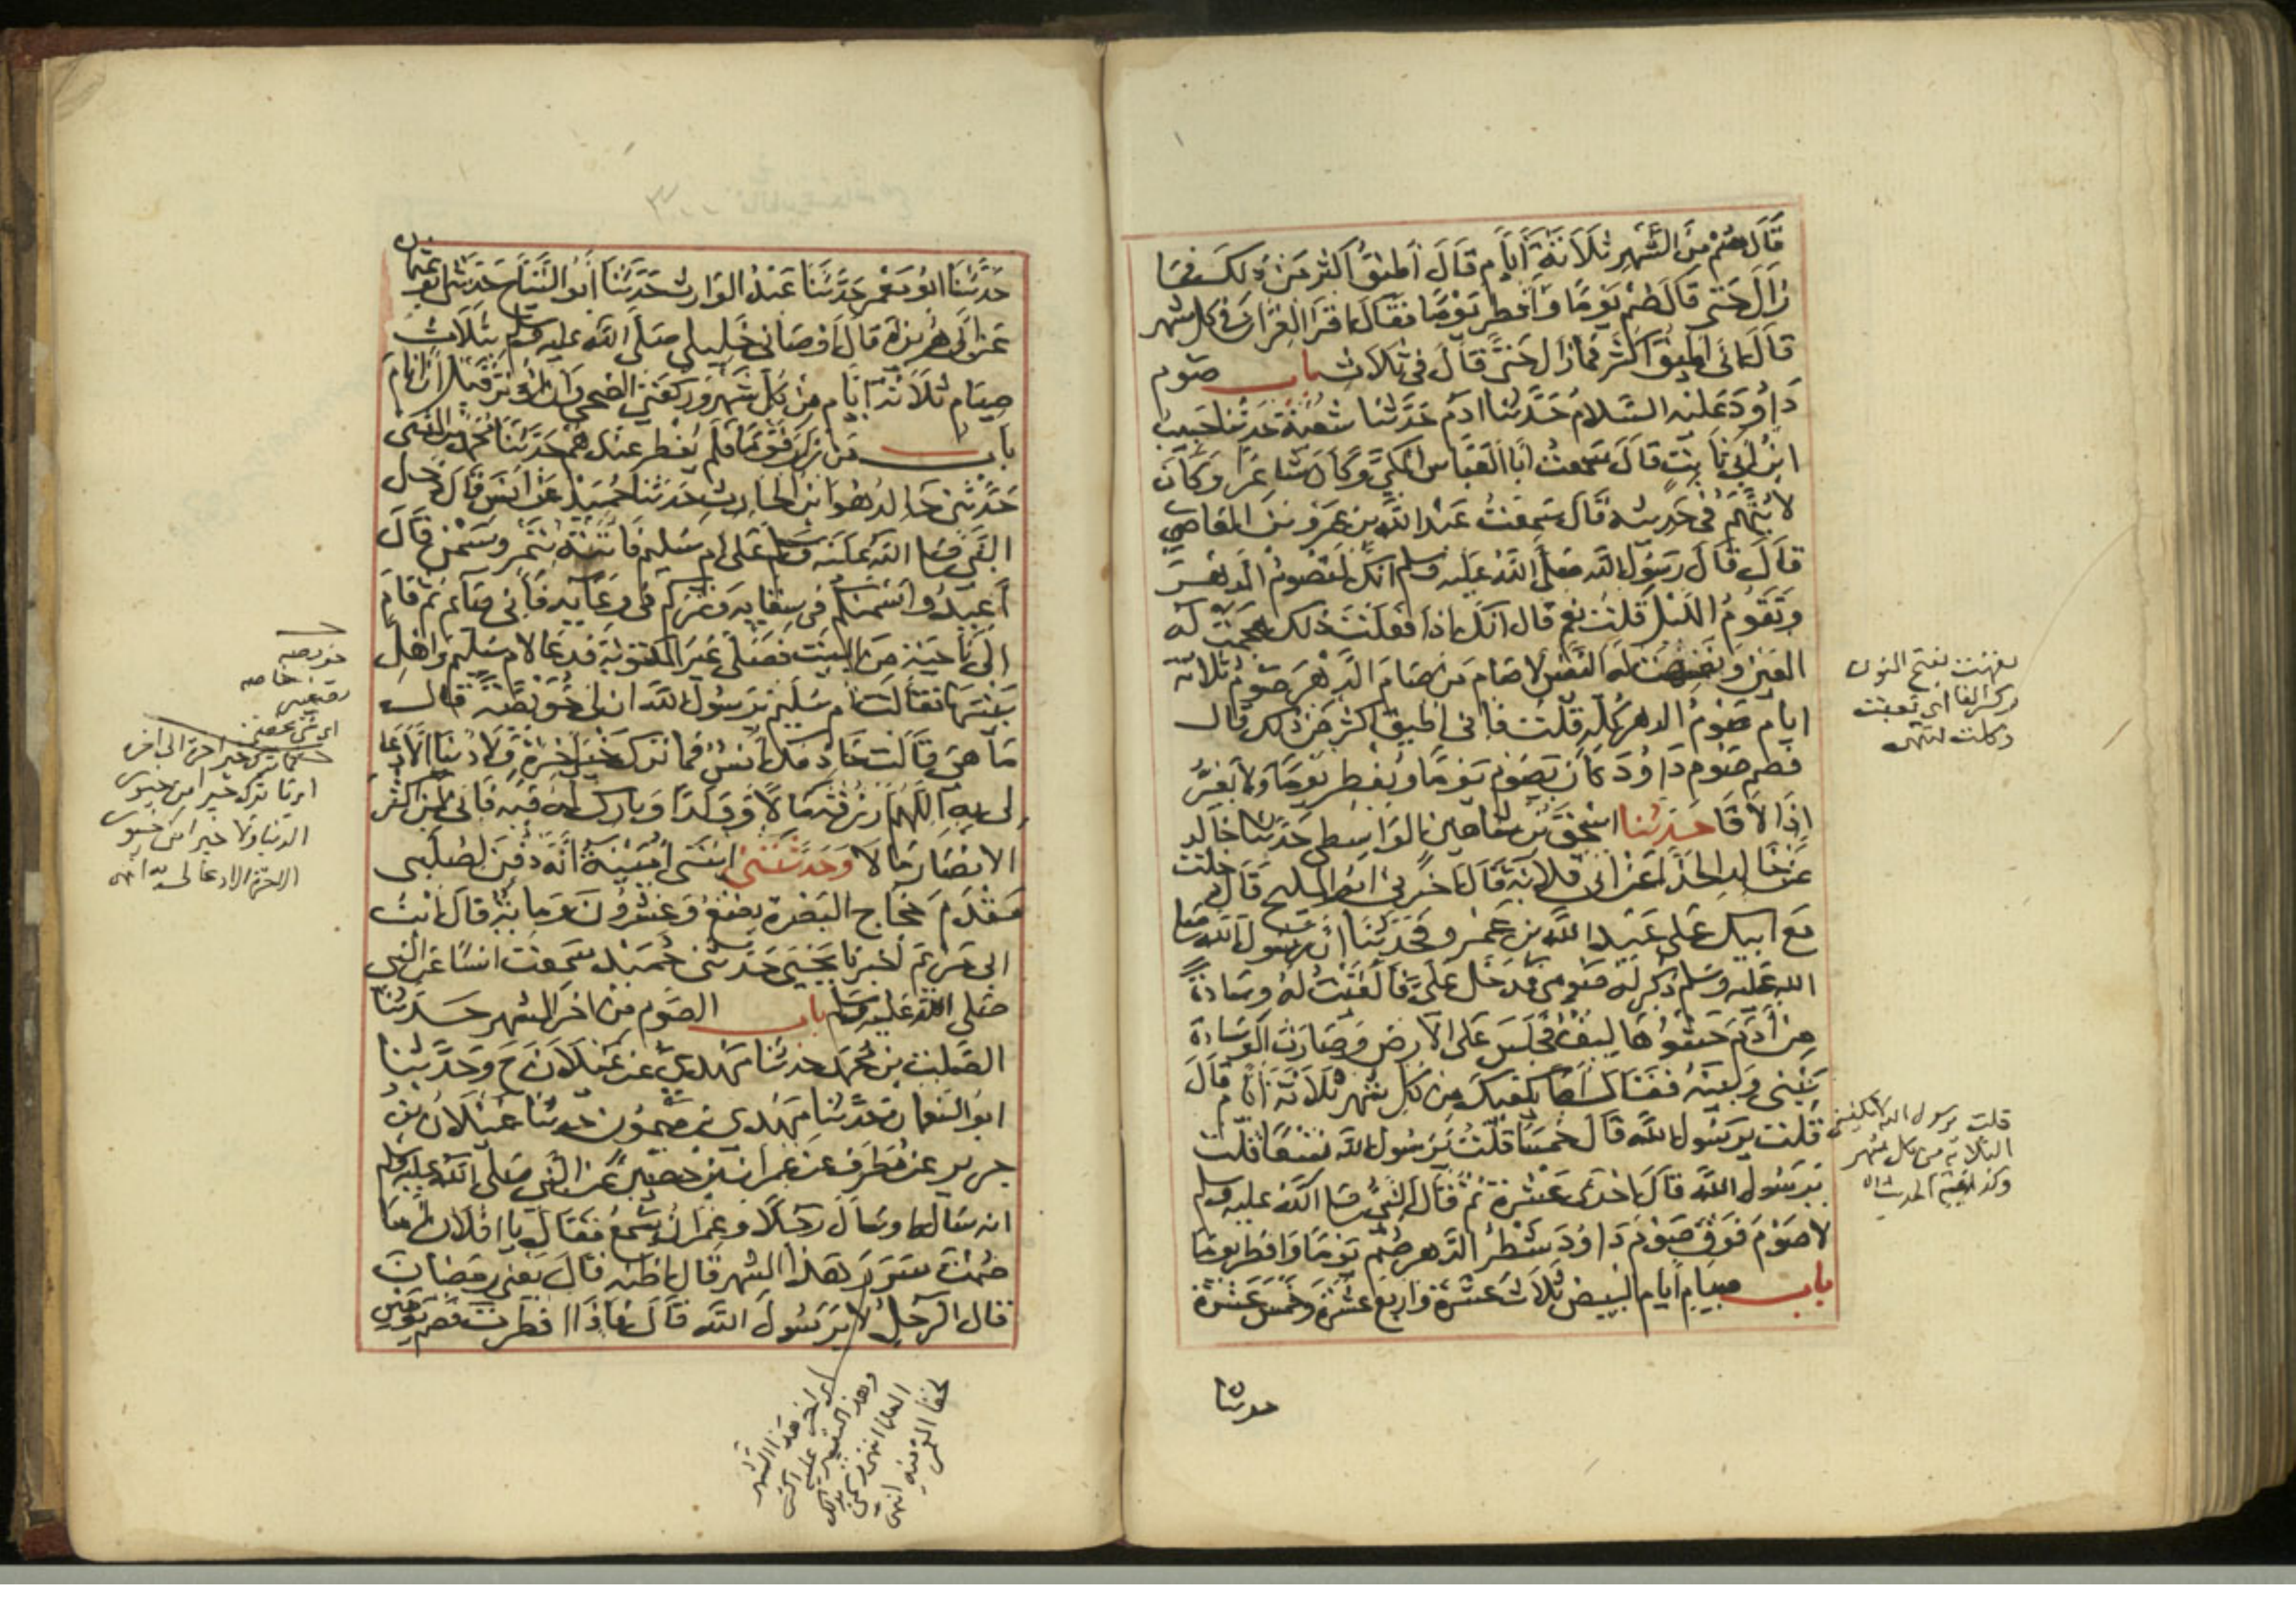 قَالَ صُمْ مِنَ الشَّهْرِ ثَلَاثَةَ أَيَّامٍ قَالَ أُطِيقُ أَكْثَرَ مِنْ ذلك فما
زَالَ حَتَّى قَالَ صُمْ يَوْمًا وَأَفْطِرْ يَوْمًا فَقَالَ اقْرَإِ القرآن في كل شهر
قَالَ إني أطيق أكثر فما زال حَتَّى قَالَ في ثلاث باب صوم
دَاوُدَ عَلَيْهِ السَّلَامُ حَدَّثَنَا ادم حَدَّثَنَا شعبة حدثنا حبيب
ابن أبي ثابت قَالَ سَمِعْتُ أبا العباس المكي وكان شاعرا وَكَانَ
لا يتهم في حديثه قَالَ سَمِعْتُ عبد الله بن عمرو بن العاصي
قَالَ قَالَ رَسُول الله صلى الله عليه وسلم انك لتصوم الدهر
وتقوم الليل قلت نعم قال انك اذا فعلت ذلك هجمت له
العين ونفهت له النفس لا صام من صام الدهر صوم ثلاثة
ايام صوم الدهر كله قلت فاني اطيق اكثر من ذلك قال
فصم صوم داود كان يصوم يوما ويفطر يوما ولا يفر
إذا لاقا حدثنا اسحق بن شاهين الواسطي حدثنا خالد
عن خالد الحذا عن ابي قلابة قال اخبرني ابو المليح قال دخلت
مع ابيك على عبد الله بن عمرو فحدثنا ان رسول الله صلى
الله عليه وسلم ذكر له صومي فدخل على فالقيت له وسادة
من أدم حشوها ليف فجلس على الارض وصارت الوسادة
بيني وبينه فقال اما يكفيك من كل شهر ثلاثة ايام قال
قلت يرسول الله قال خمسا قلت يرسول الله تسعا قلت
يرسول الله قال احدى عشرة ثم قال النبي صلى الله عليه وسلم
لا صوم فوق صوم داود شطر الدهر صم يوما وافطر يوما
باب صيام أيام البيض ثلاث عشرة واربع عشرة وخمس عشرة
حدثنا
نفهت بفتح النون
وكسر الفا اي تعبت
وكلت انتهى
قلت يرسول الله لا يكفيني
الثلاثة من كل شهر
حَدَّثَنَا ابو معمر حَدَّثَنَا عبد الوارث حَدَّثَنَا أبو التياح حدثني ابو عثمان
عن ابي هريرة قال اوصاني خليلي صلى الله عليه وسلم بثلاث
صيام ثلاثة ايام من كل شهر وركعتي الضحى وان اوتر قبل ان انام
باب من زار قوما فلم يفطر عندهم حدثنا محمد بن المثنى
حدثني خالد هو ابن الحارث حدثنا حميد عن أنس قال دخل
النبي صلى الله عليه وسلم على ام سليم فاتته بتمر وسمن قال
أعيدوا سمنكم في سقايه وتمركم في وعايه فاني صائم ثم قام
الى ناحية من البيت فصلى غير المكتوبة فدعا لام سليم واهل
بيتها فقالت ام سليم يرسول الله ان لي خويصة قال
ما هي قالت خادمك أنس فما ترك خير اخرة ولا دنيا الا دعا
لي به اللهم ارزقه مالا وولدا وبارك له فيه فاني لمن اكثر
الانصار مالا وحدثتني ابنتي أمينة أنه دفن لصلبي
مقدم حجاج البصرة بضع وعشرون ومائة قال ابن
ابي مريم اخبرنا يحيى حدثني حميد سمعت انسا عن النبي
صلى الله عليه وسلم باب الصوم من اخر الشهر حدثنا
الصلت بن محمد حدثنا مهدي عن غيلان ح وحدثنا
ابو النعمان حدثنا مهدي بن ميمون حدثنا غيلان بن
جرير عن مطرف عن عمران بن حصين عن النبي صلى الله عليه وسلم
انه ساله او سال رجلا وعمران يسمع فقال يا ابا فلان اما
صمت سرر هذا الشهر قال اظنه قال يعني رمضان
قال الرجل لا يرسول الله قال فاذا افطرت فصم يومين
خويصه
خاصه
اي ما ترك خيرا من خيور
الدنيا ولا خيرا من خيور
الاخرة الا دعا لي به انتهى
اي اخر هذا الشهر